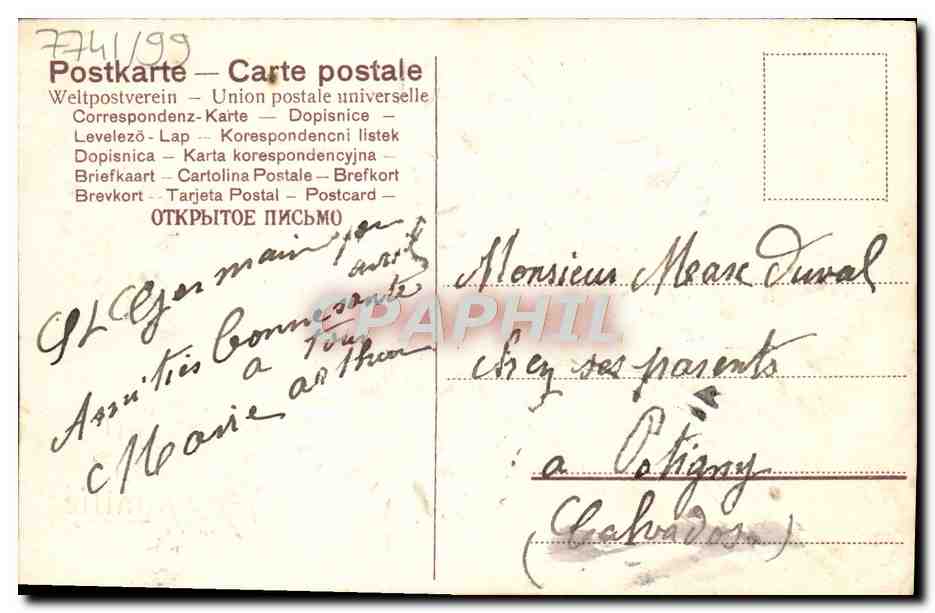 7741/99
Postkarte — Carte postale
Weltpostverein — Union postale universelle
Correspondenz-Karte — Dopisnice —
Levelező-Lap — Korespondencni listek
Dopisnica — Karta korespondencyjna —
Briefkaart — Cartolina Postale — Brefkort
Brevkort — Tarjeta Postal — Postcard —
ОТКРЫТОЕ ПИСЬМО
St Germain
avril
Amitiés bonne santé
a tous
Marie
CPAPHIL
Monsieur Marc Duval
chez ses parents
a Potigny
(Calvados)